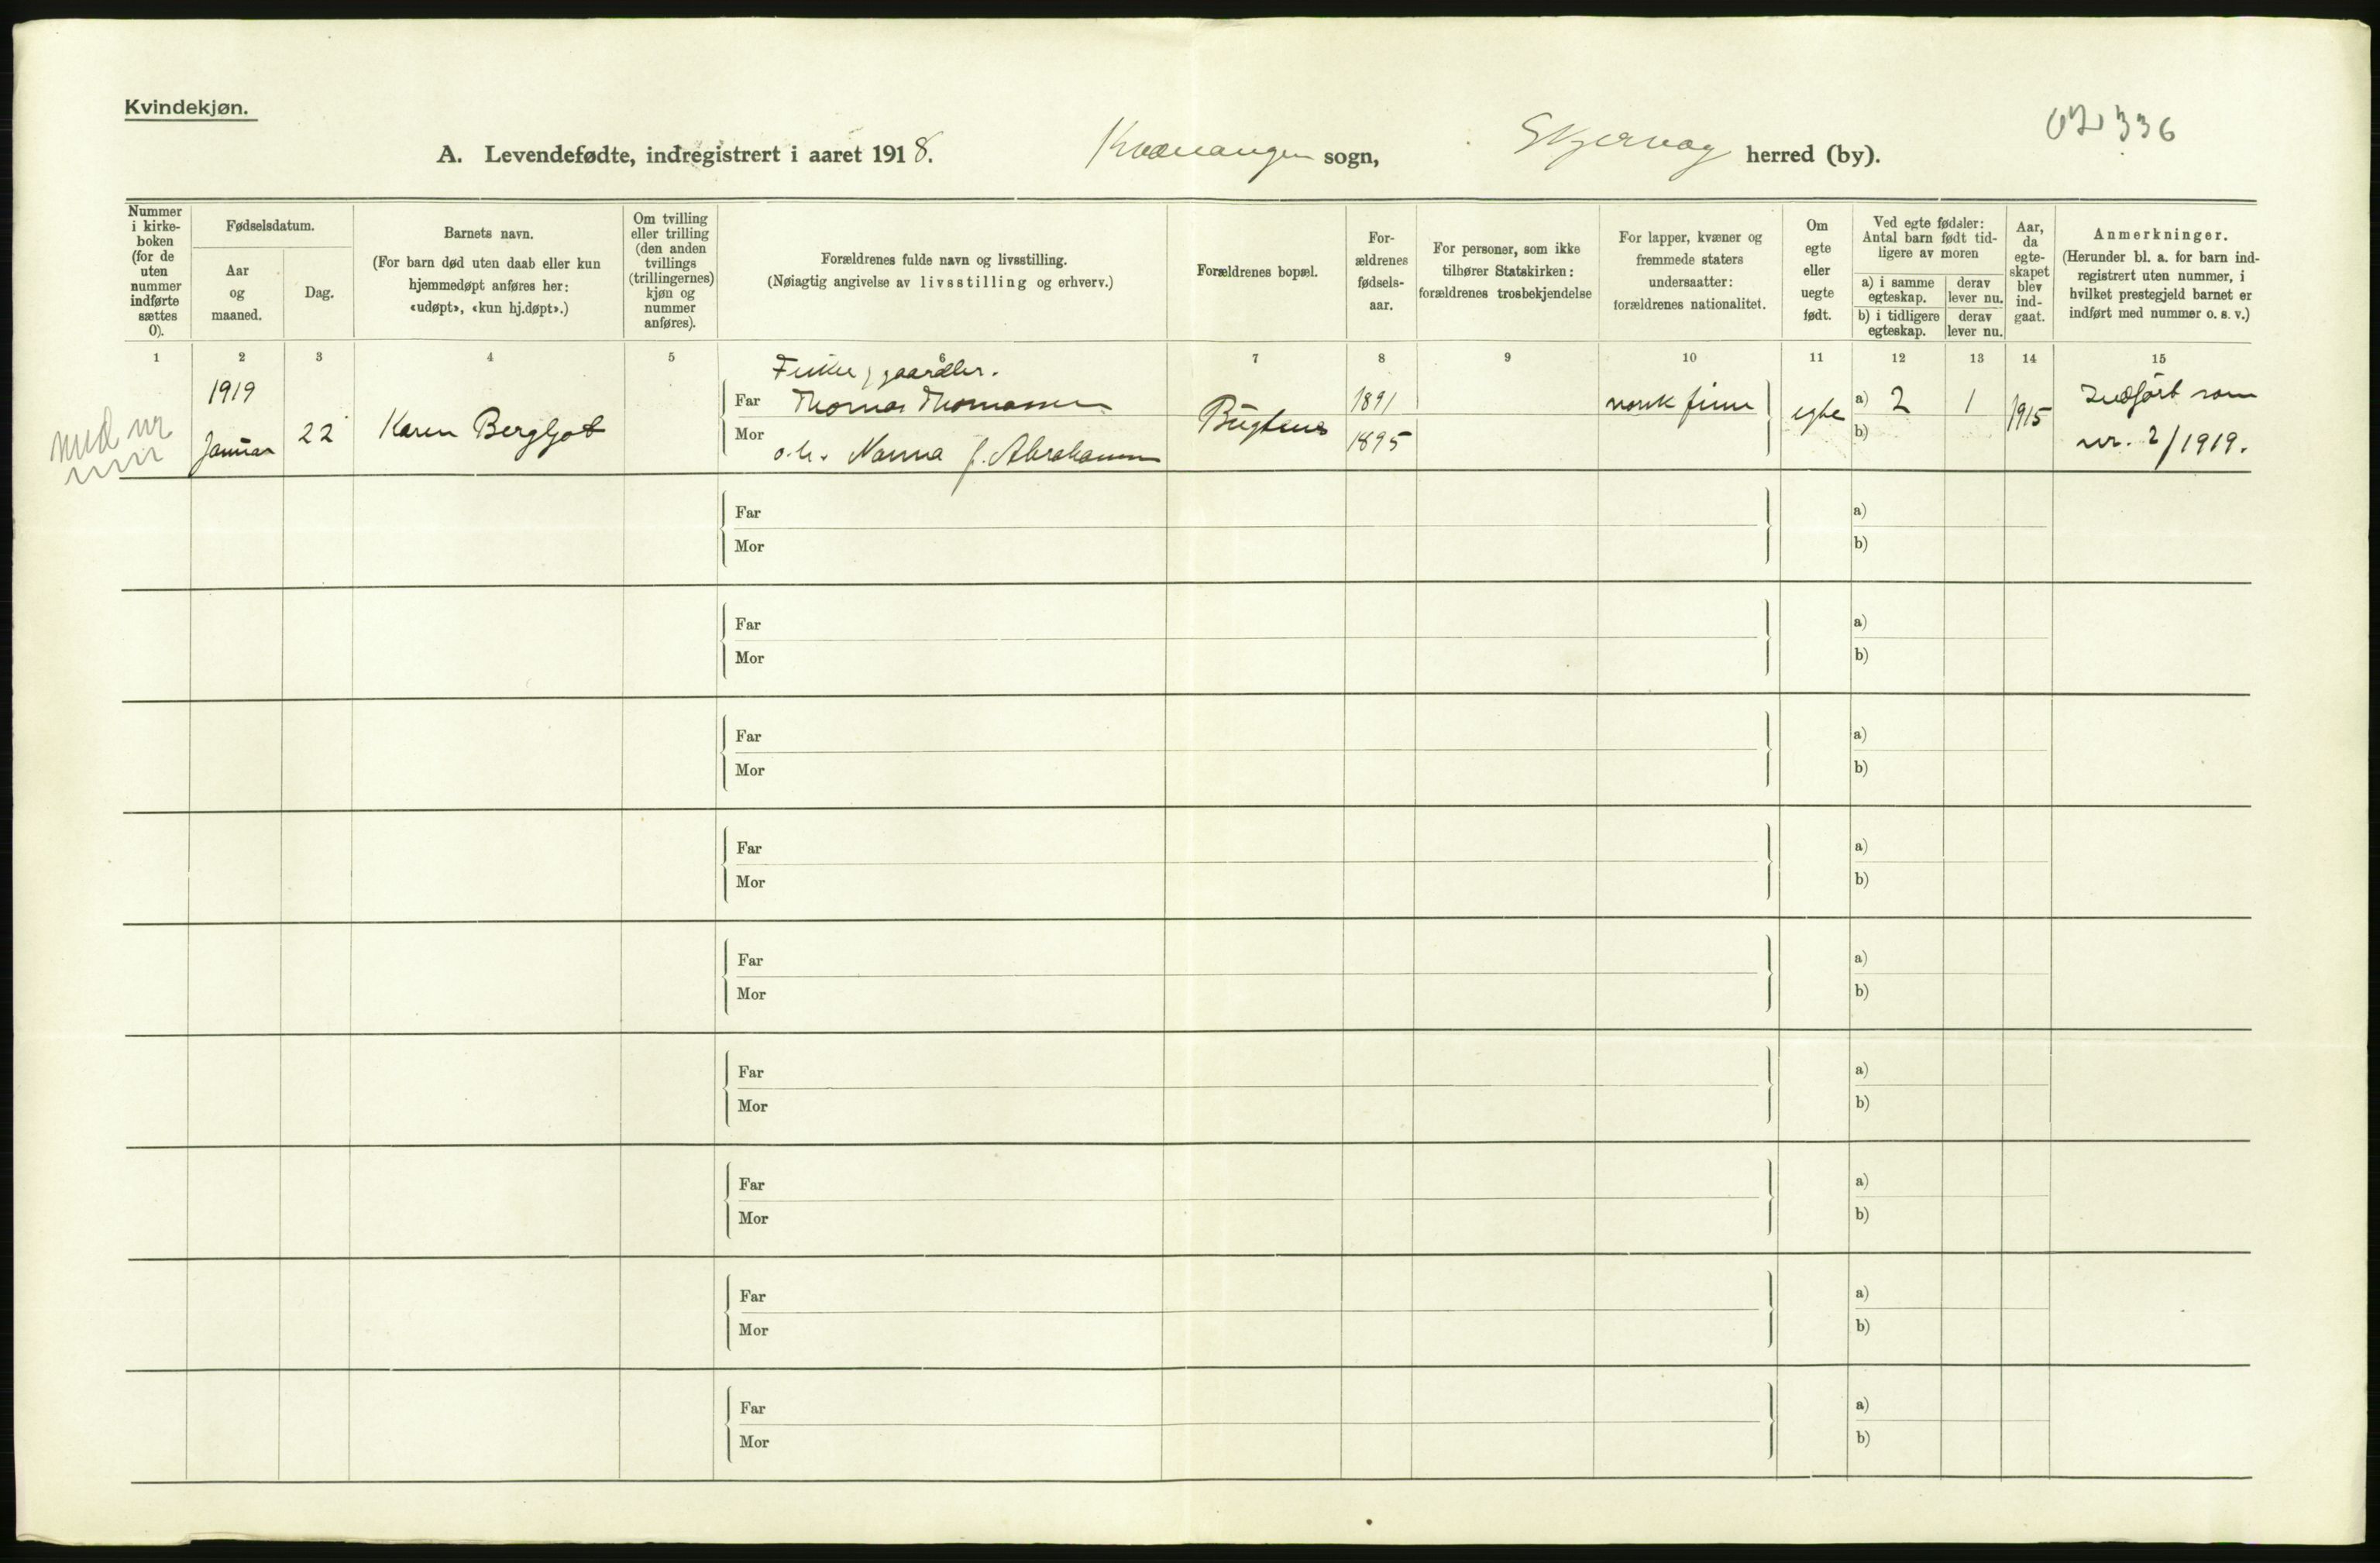 Kvindekjøn.
A. Levendefødte, indregistrert i aaret 1918. Kvænangen sogn, Skjervøy herred (by).
336
Nummer i kirke-boken (for de uten nummer indførte sættes 0).
Fødselsdatum.
Aar og maaned.
Dag.
Barnets navn.
(For barn død uten daab eller kun hjemmedøpt anføres her: «udøpt», «kun hj.døpt».)
Om tvilling eller trilling (den anden tvillings (trillingernes) kjøn og nummer anføres).
Forældrenes fulde navn og livsstilling.
(Nøiagtig angivelse av livsstilling og erhverv.)
Forældrenes bopæl.
For-ældrenes fødsels-aar.
For personer, som ikke tilhører Statskirken: forældrenes trosbekjendelse
For lapper, kvæner og fremmede staters undersaatter: forældrenes nationalitet.
Om egte eller uegte født.
Ved egte fødsler: Antal barn født tid-ligere av moren
a) i samme egteskap.
derav lever nu.
b) i tidligere egteskap.
derav lever nu.
Aar, da egte-skapet blev ind-gaat.
Anmerkninger.
(Herunder bl. a. for barn ind-registrert uten nummer, i hvilket prestegjeld barnet er indført med nummer o. s. v.)
1 2 3 4 5 6 7 8 9 10 11 12 13 14 15
med nr
1919
Januar 22 Karen Bergljot
Fisker, gaardbr.
Far Thomas Thomassen
Mor o. h. Nanna f. Abrahamsen
1891
1895
norsk finn egte a) 2 1 1915
b)
Indført som
nr. 2/1919.
Far a)
Mor b)
Far a)
Mor b)
Far a)
Mor b)
Far a)
Mor b)
Far a)
Mor b)
Far a)
Mor b)
Far a)
Mor b)
Far a)
Mor b)
Far a)
Mor b)